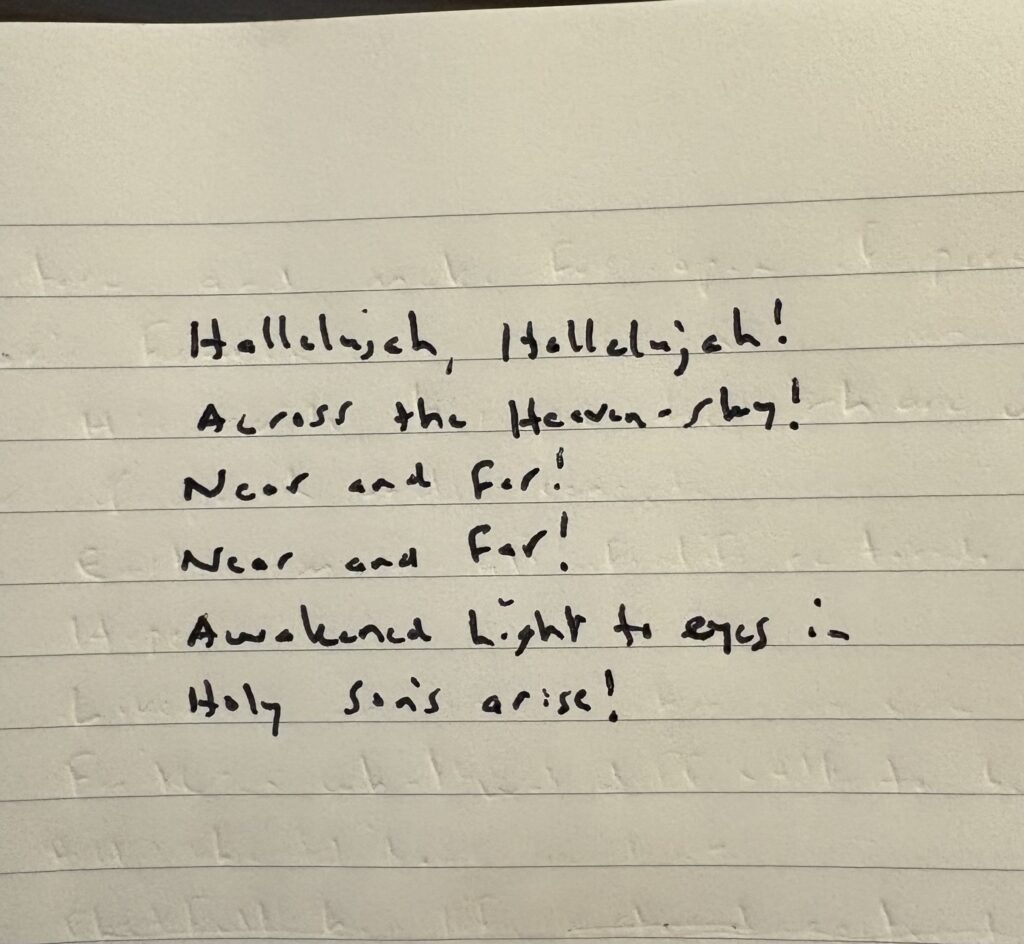 Hallelujah, Hallelujah!
Across the Heaven-sky!
Near and Far!
Near and Far!
Awakened Light to eyes in
Holy Son's arise!